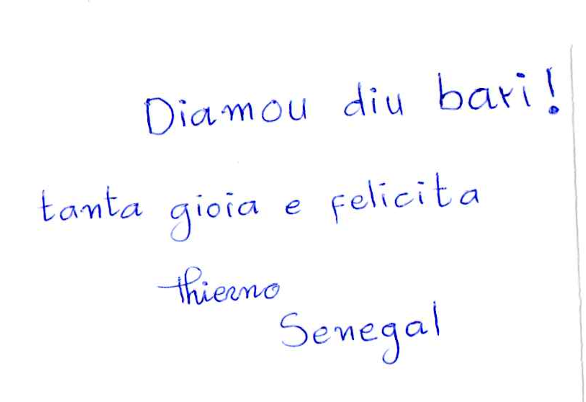 Diamou diu bari!
tanta gioia e felicita
thierno
Senegal